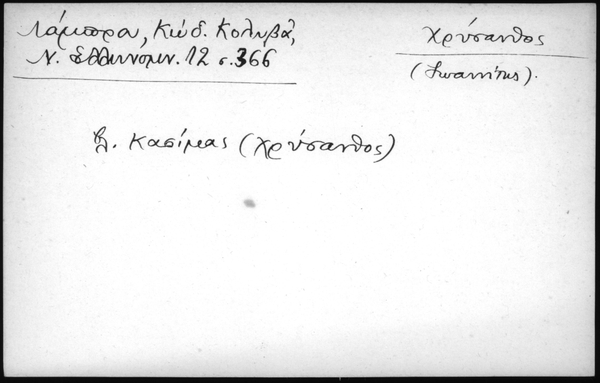 Λάμπρου, Κώδ. Κολυβᾶ,
Ν. Ἑλληνομν. 12 σ. 366
Χρύσανθος
(Ἰωαννίτης).
βλ. Κασίμεας (Χρύσανθος)